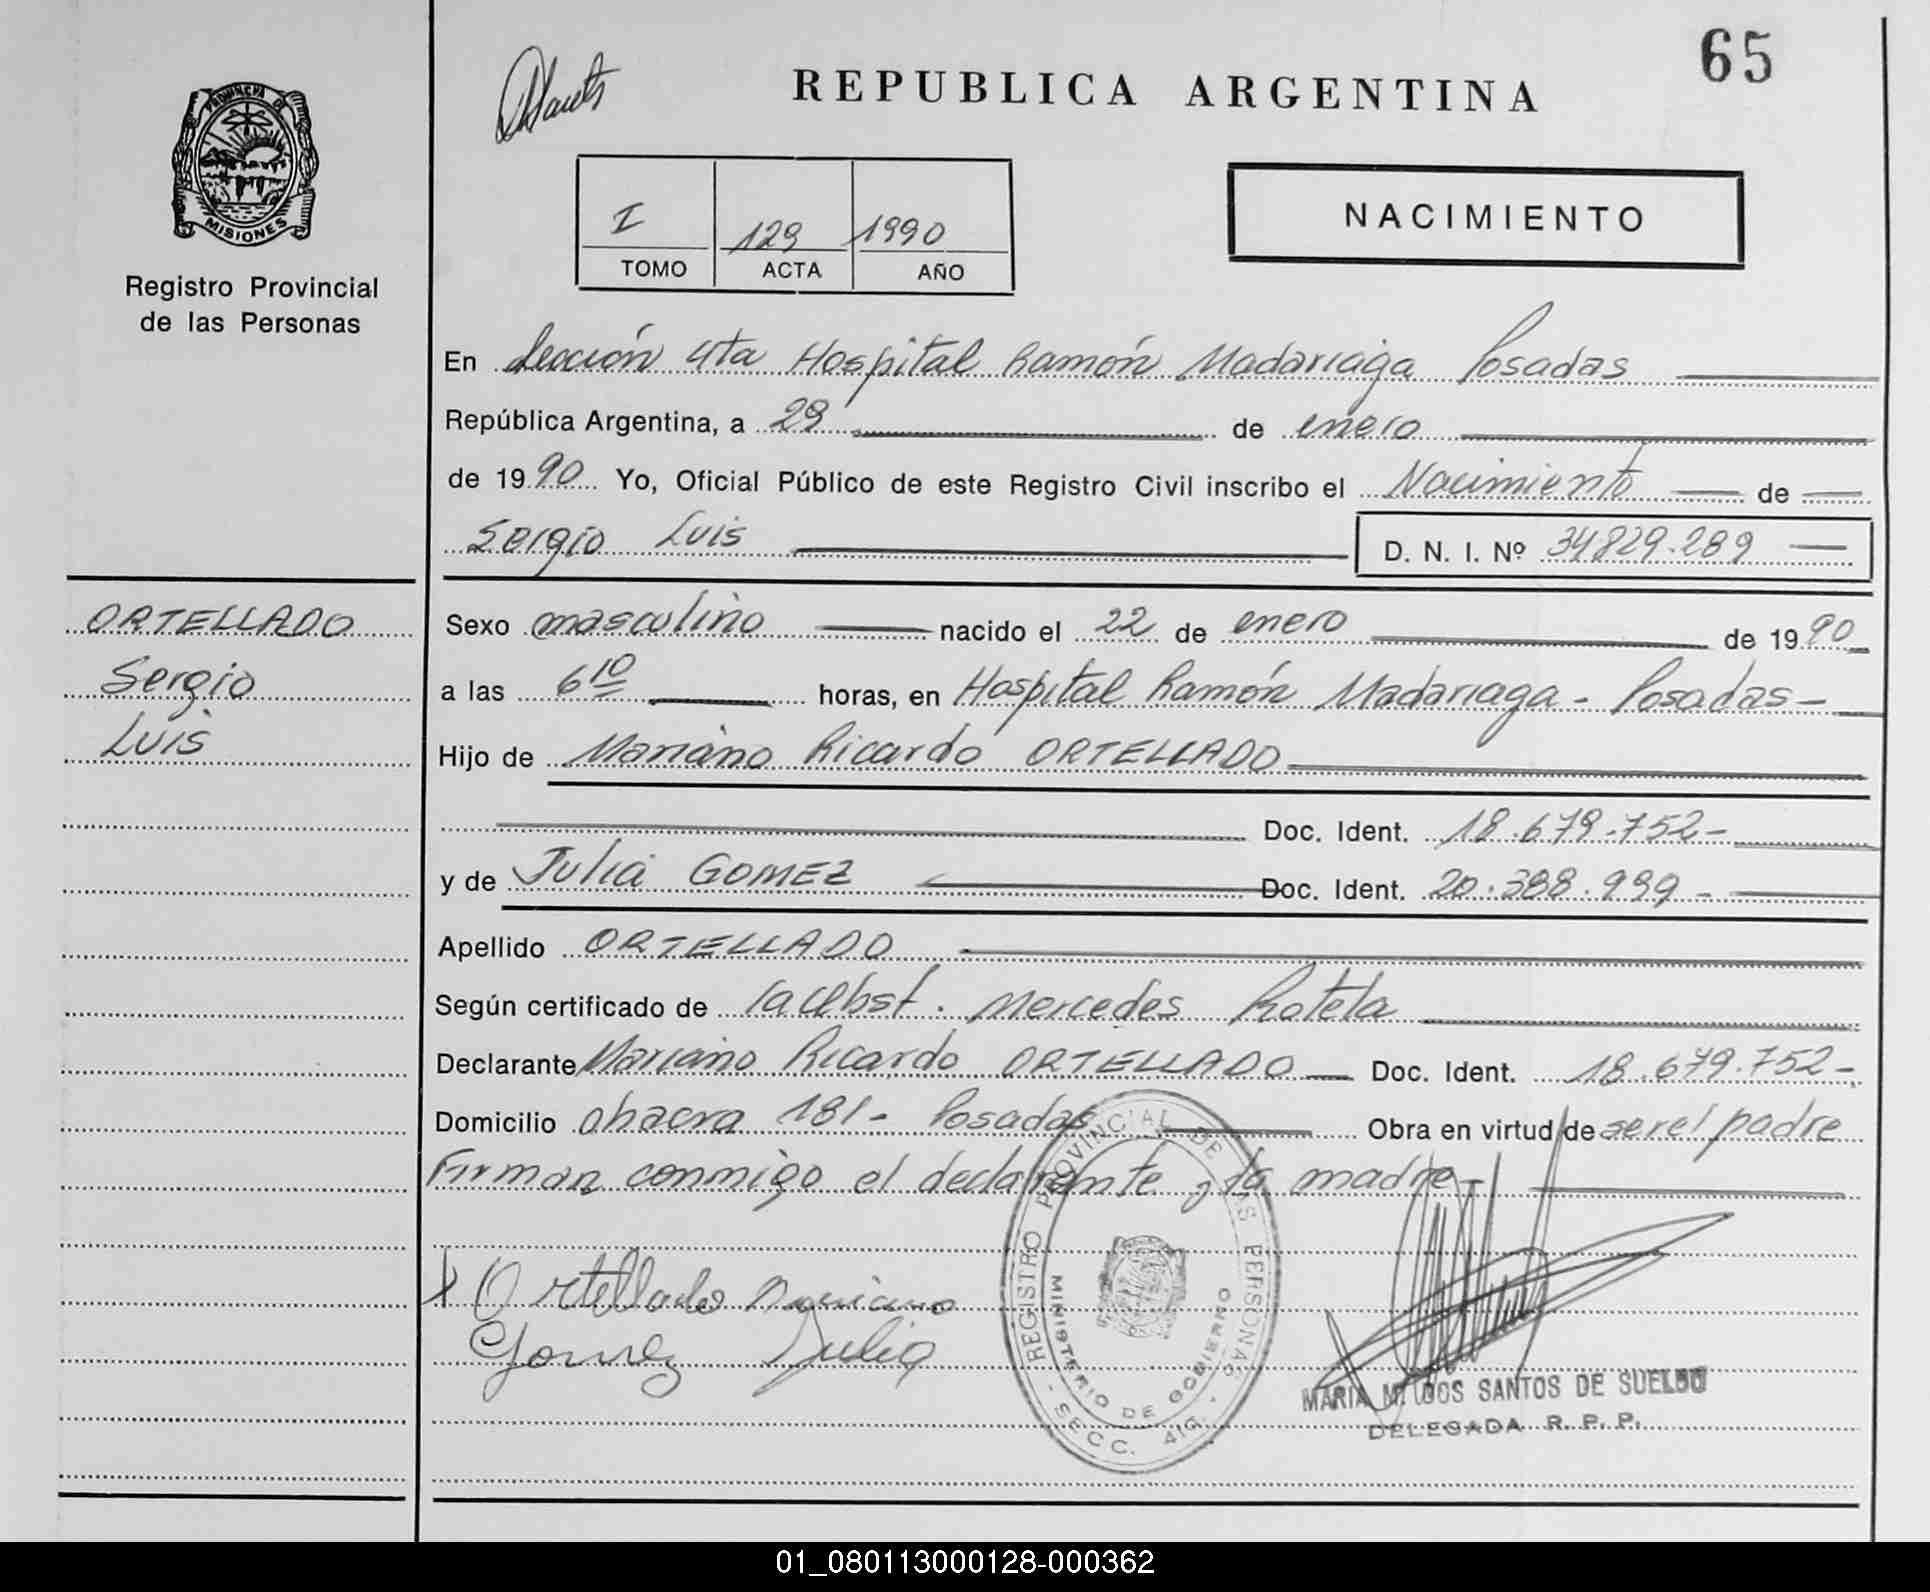 65
REPUBLICA ARGENTINA
PROVINCIA DE
MISIONES
Registro Provincial
de las Personas
I 129 1990
TOMO ACTA AÑO
NACIMIENTO
En Sección 4ta Hospital Ramón Madariaga Posadas
República Argentina, a 29 de enero
de 1990 Yo, Oficial Público de este Registro Civil inscribo el Nacimiento de
Sergio Luis D. N. I. Nº 34829.289
ORTELLADO
Sergio
Luis
Sexo masculino nacido el 22 de enero de 1990
a las 6 10 horas, en Hospital Ramón Madariaga - Posadas -
Hijo de Mariano Ricardo ORTELLADO
Doc. Ident. 18.679.752-
y de Julia GOMEZ Doc. Ident. 20.388.999-
Apellido ORTELLADO
Según certificado de Mercedes Rotela
Declarante Mariano Ricardo ORTELLADO Doc. Ident. 18.679.752-
Domicilio chacra 181- Posadas Obra en virtud de ser el padre
Firman conmigo el declarante y la madre-
x Ortellado Mariano
Gomez Julia
REGISTRO PROVINCIAL DE LAS PERSONAS
MINISTERIO DE GOBIERNO
- SECC. 4ta. -
MARIA M. DOS SANTOS DE SUELDO
DELEGADA R. P. P.
01_080113000128-000362